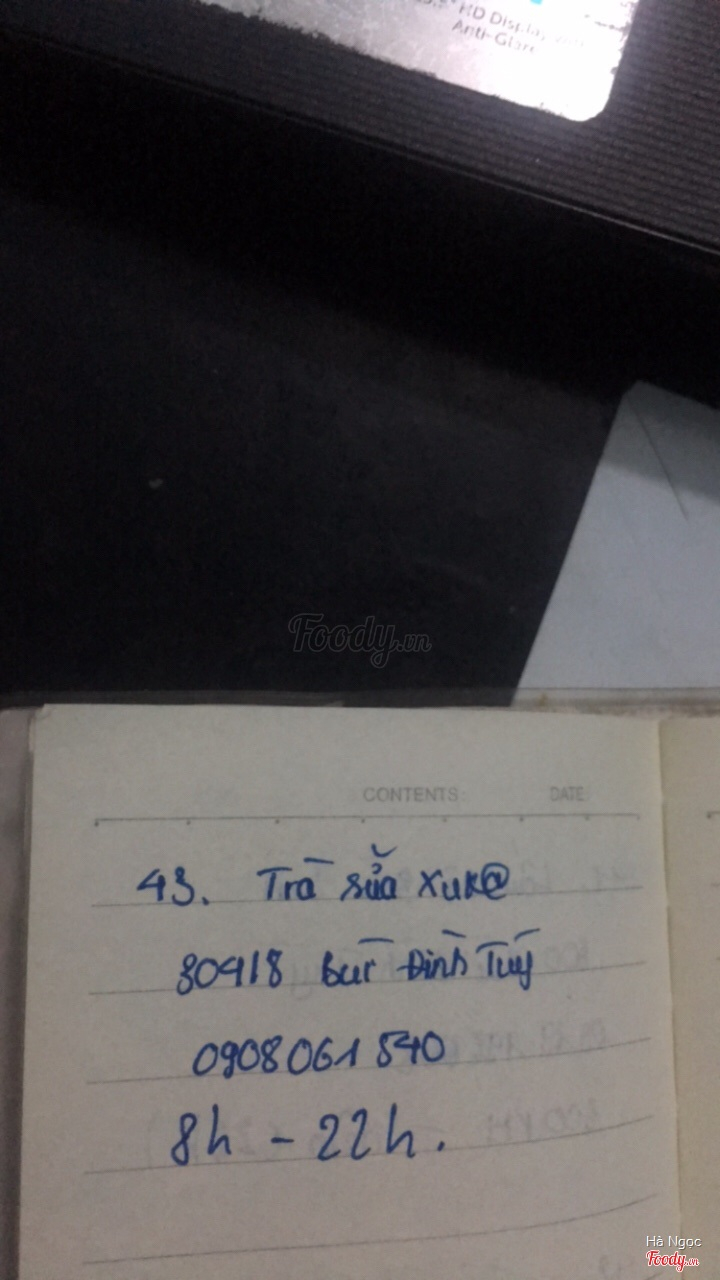 HD Display with
Anti-Glare
Foody.vn
CONTENTS: DATE:
43. Trà sữa Xuk@
304/8 Bùi Đình Túy
0908 061 540
8h - 22h.
Hà Ngọc
Foody.vn